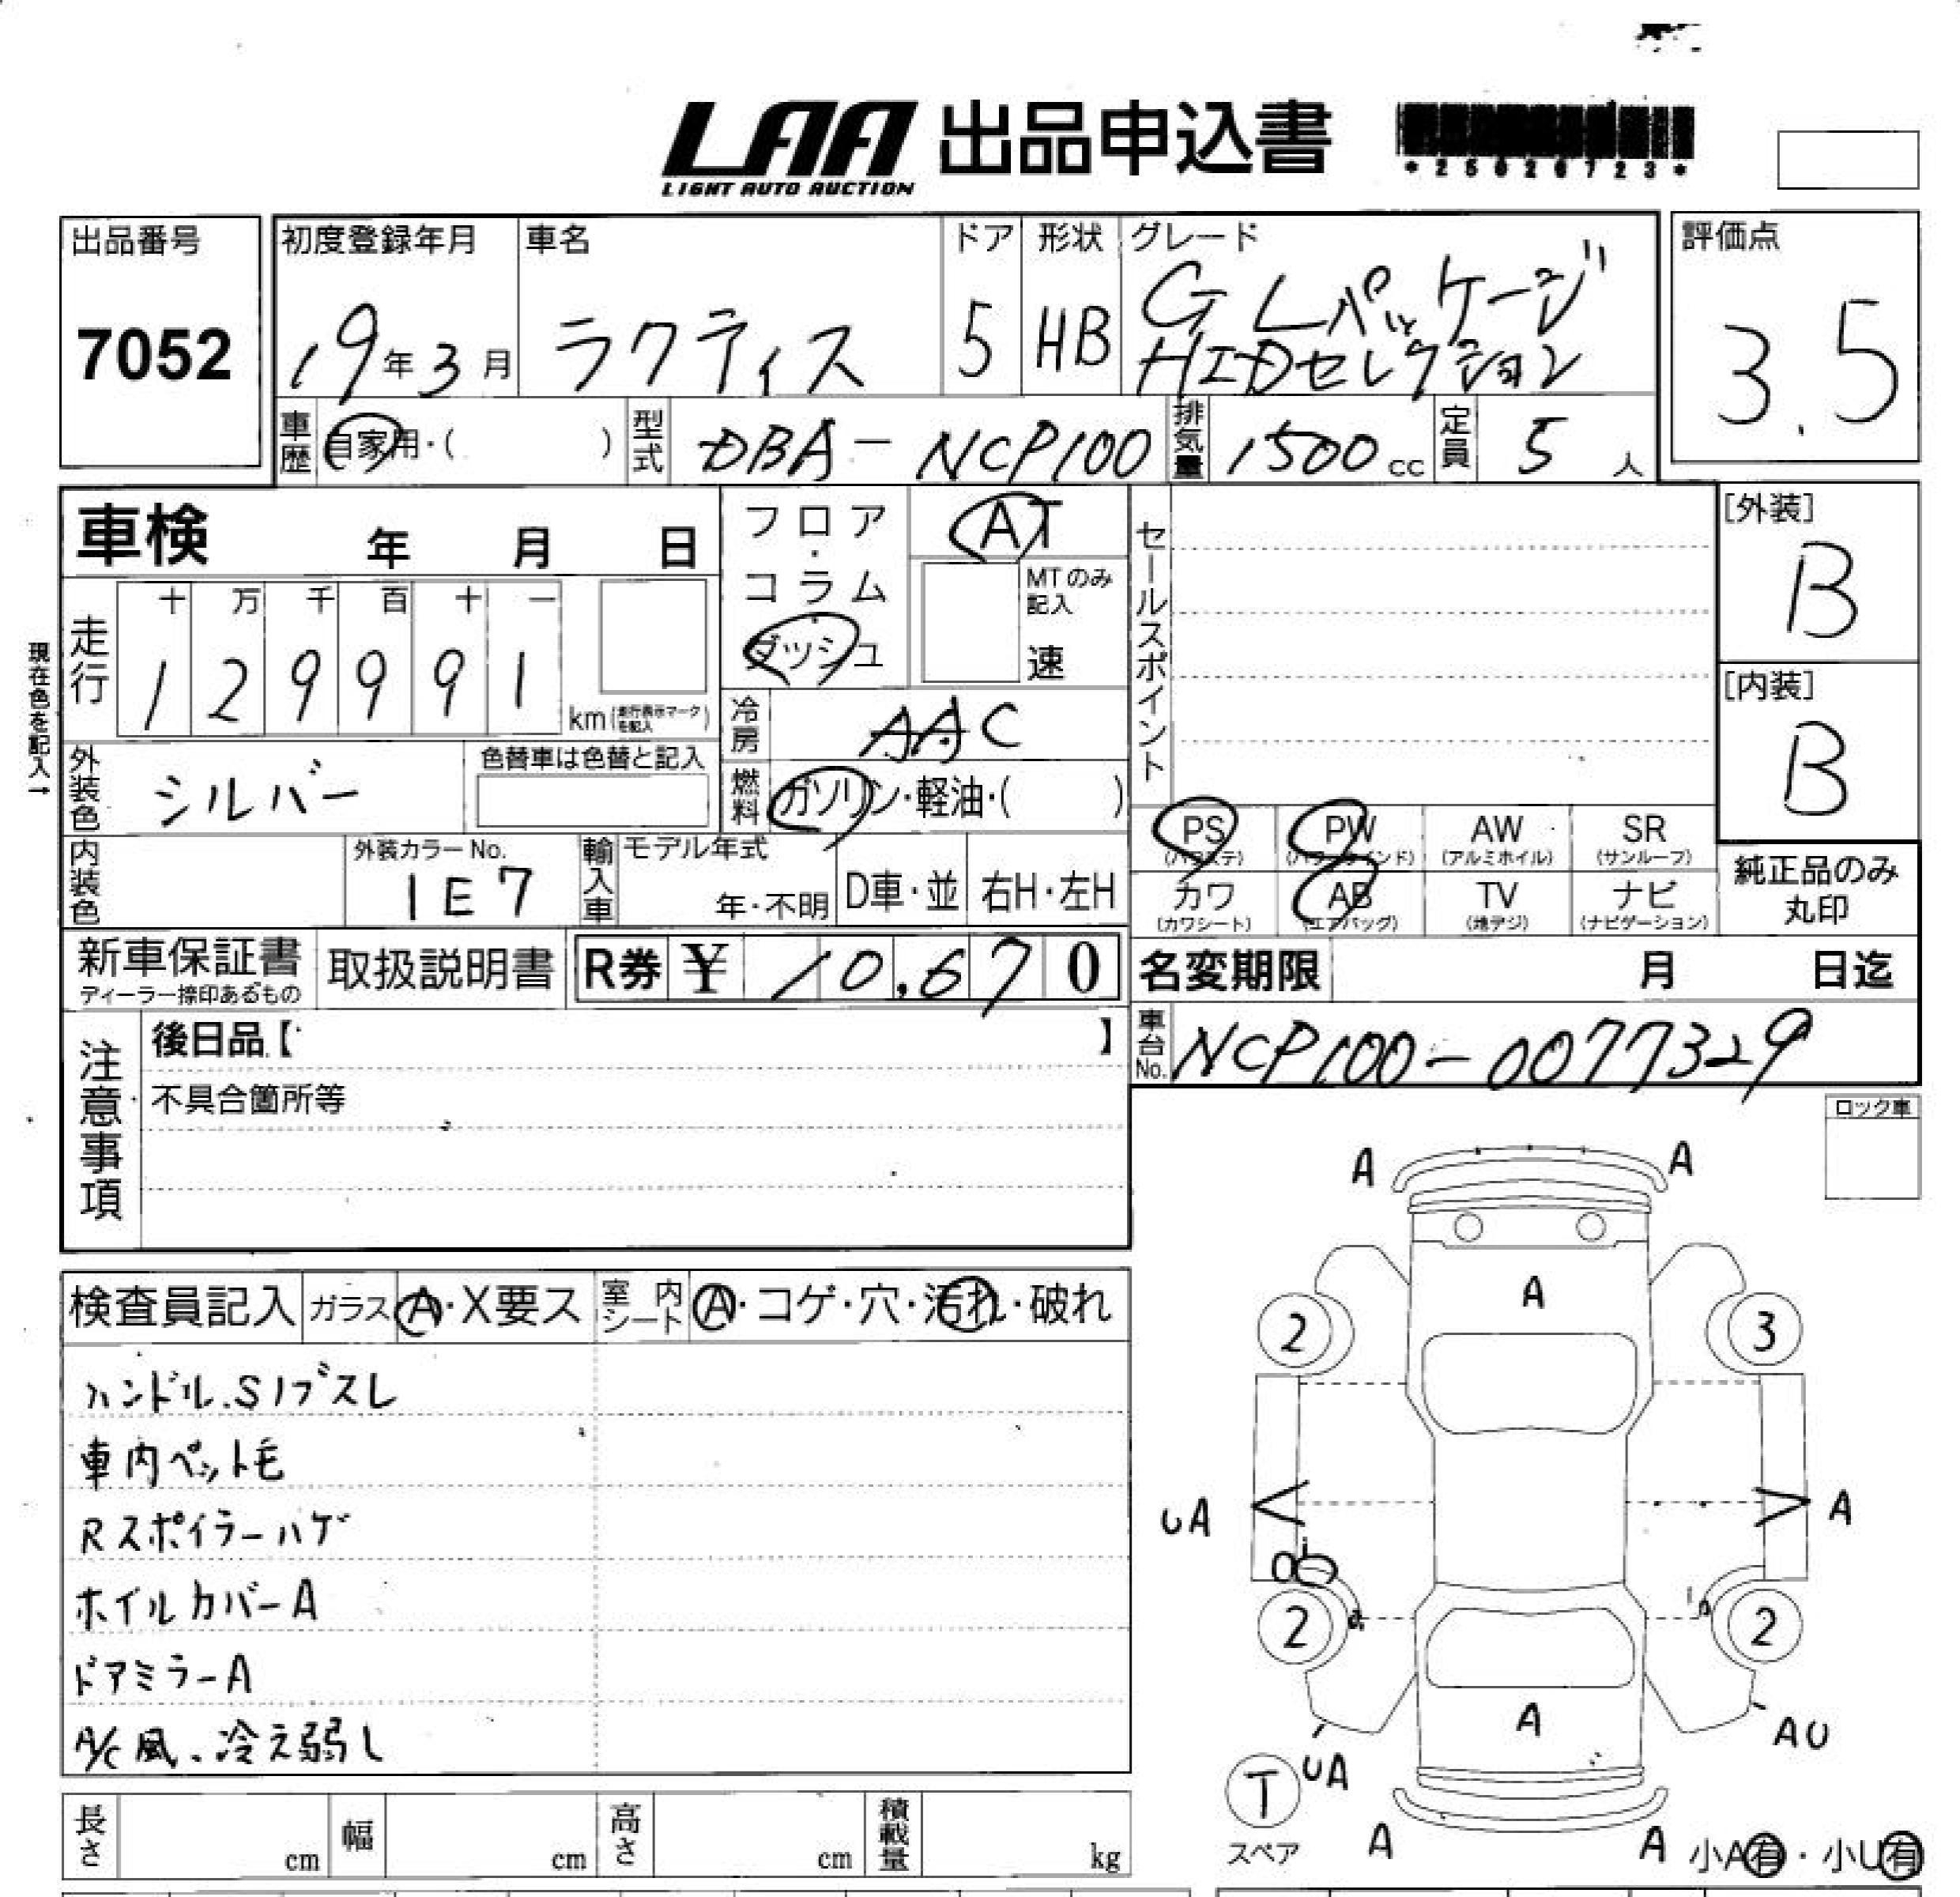 LAA 出品申込書
LIGHT AUTO AUCTION
*25026723*
出品番号
7052
初度登録年月
19年3月
車名
ラクティス
ドア
5
形状
HB
グレード
G Lパッケージ
HIDセレクション
評価点
3.5
車歴
自家用・( )
型式
DBA-NCP100
排気量
1500 cc
定員
5 人
車検 年 月 日
フロア・コラム・ダッシュ
AT
MTのみ記入
速
セールスポイント
[外装]
B
[内装]
B
現在色を記入→
走行
十 万 千 百 十 一
1 2 9 9 9 1
km(走行表示マークを記入)
冷房
AAC
燃料
ガソリン・軽油・( )
外装色
シルバー
色替車は色替と記入
内装色
外装カラーNo.
1E7
輸入車
モデル年式
年・不明
D車・並
右H・左H
PS (パワステ)
PW (パワーウインド)
AW (アルミホイル)
SR (サンルーフ)
カワ (カワシート)
AB (エアバッグ)
TV (地デジ)
ナビ (ナビゲーション)
純正品のみ
丸印
新車保証書
ディーラー捺印あるもの
取扱説明書
R券 ¥ 10,670
名変期限 月 日迄
車台No.
NCP100-0077329
注意事項
後日品【 】
不具合箇所等
ロック車
検査員記入
ガラス A・X要ス
室内シート A・コゲ・穴・汚れ・破れ
ハンドル.Sノブスレ
車内ペット毛
Rスポイラーハゲ
ホイルカバーA
ドアミラーA
A/C風、冷え弱し
A A
A
2 3
UA A
2 2
A
UA AU
T
スペア
A A
小A有・小U有
長さ cm
幅 cm
高さ cm
積載量 kg